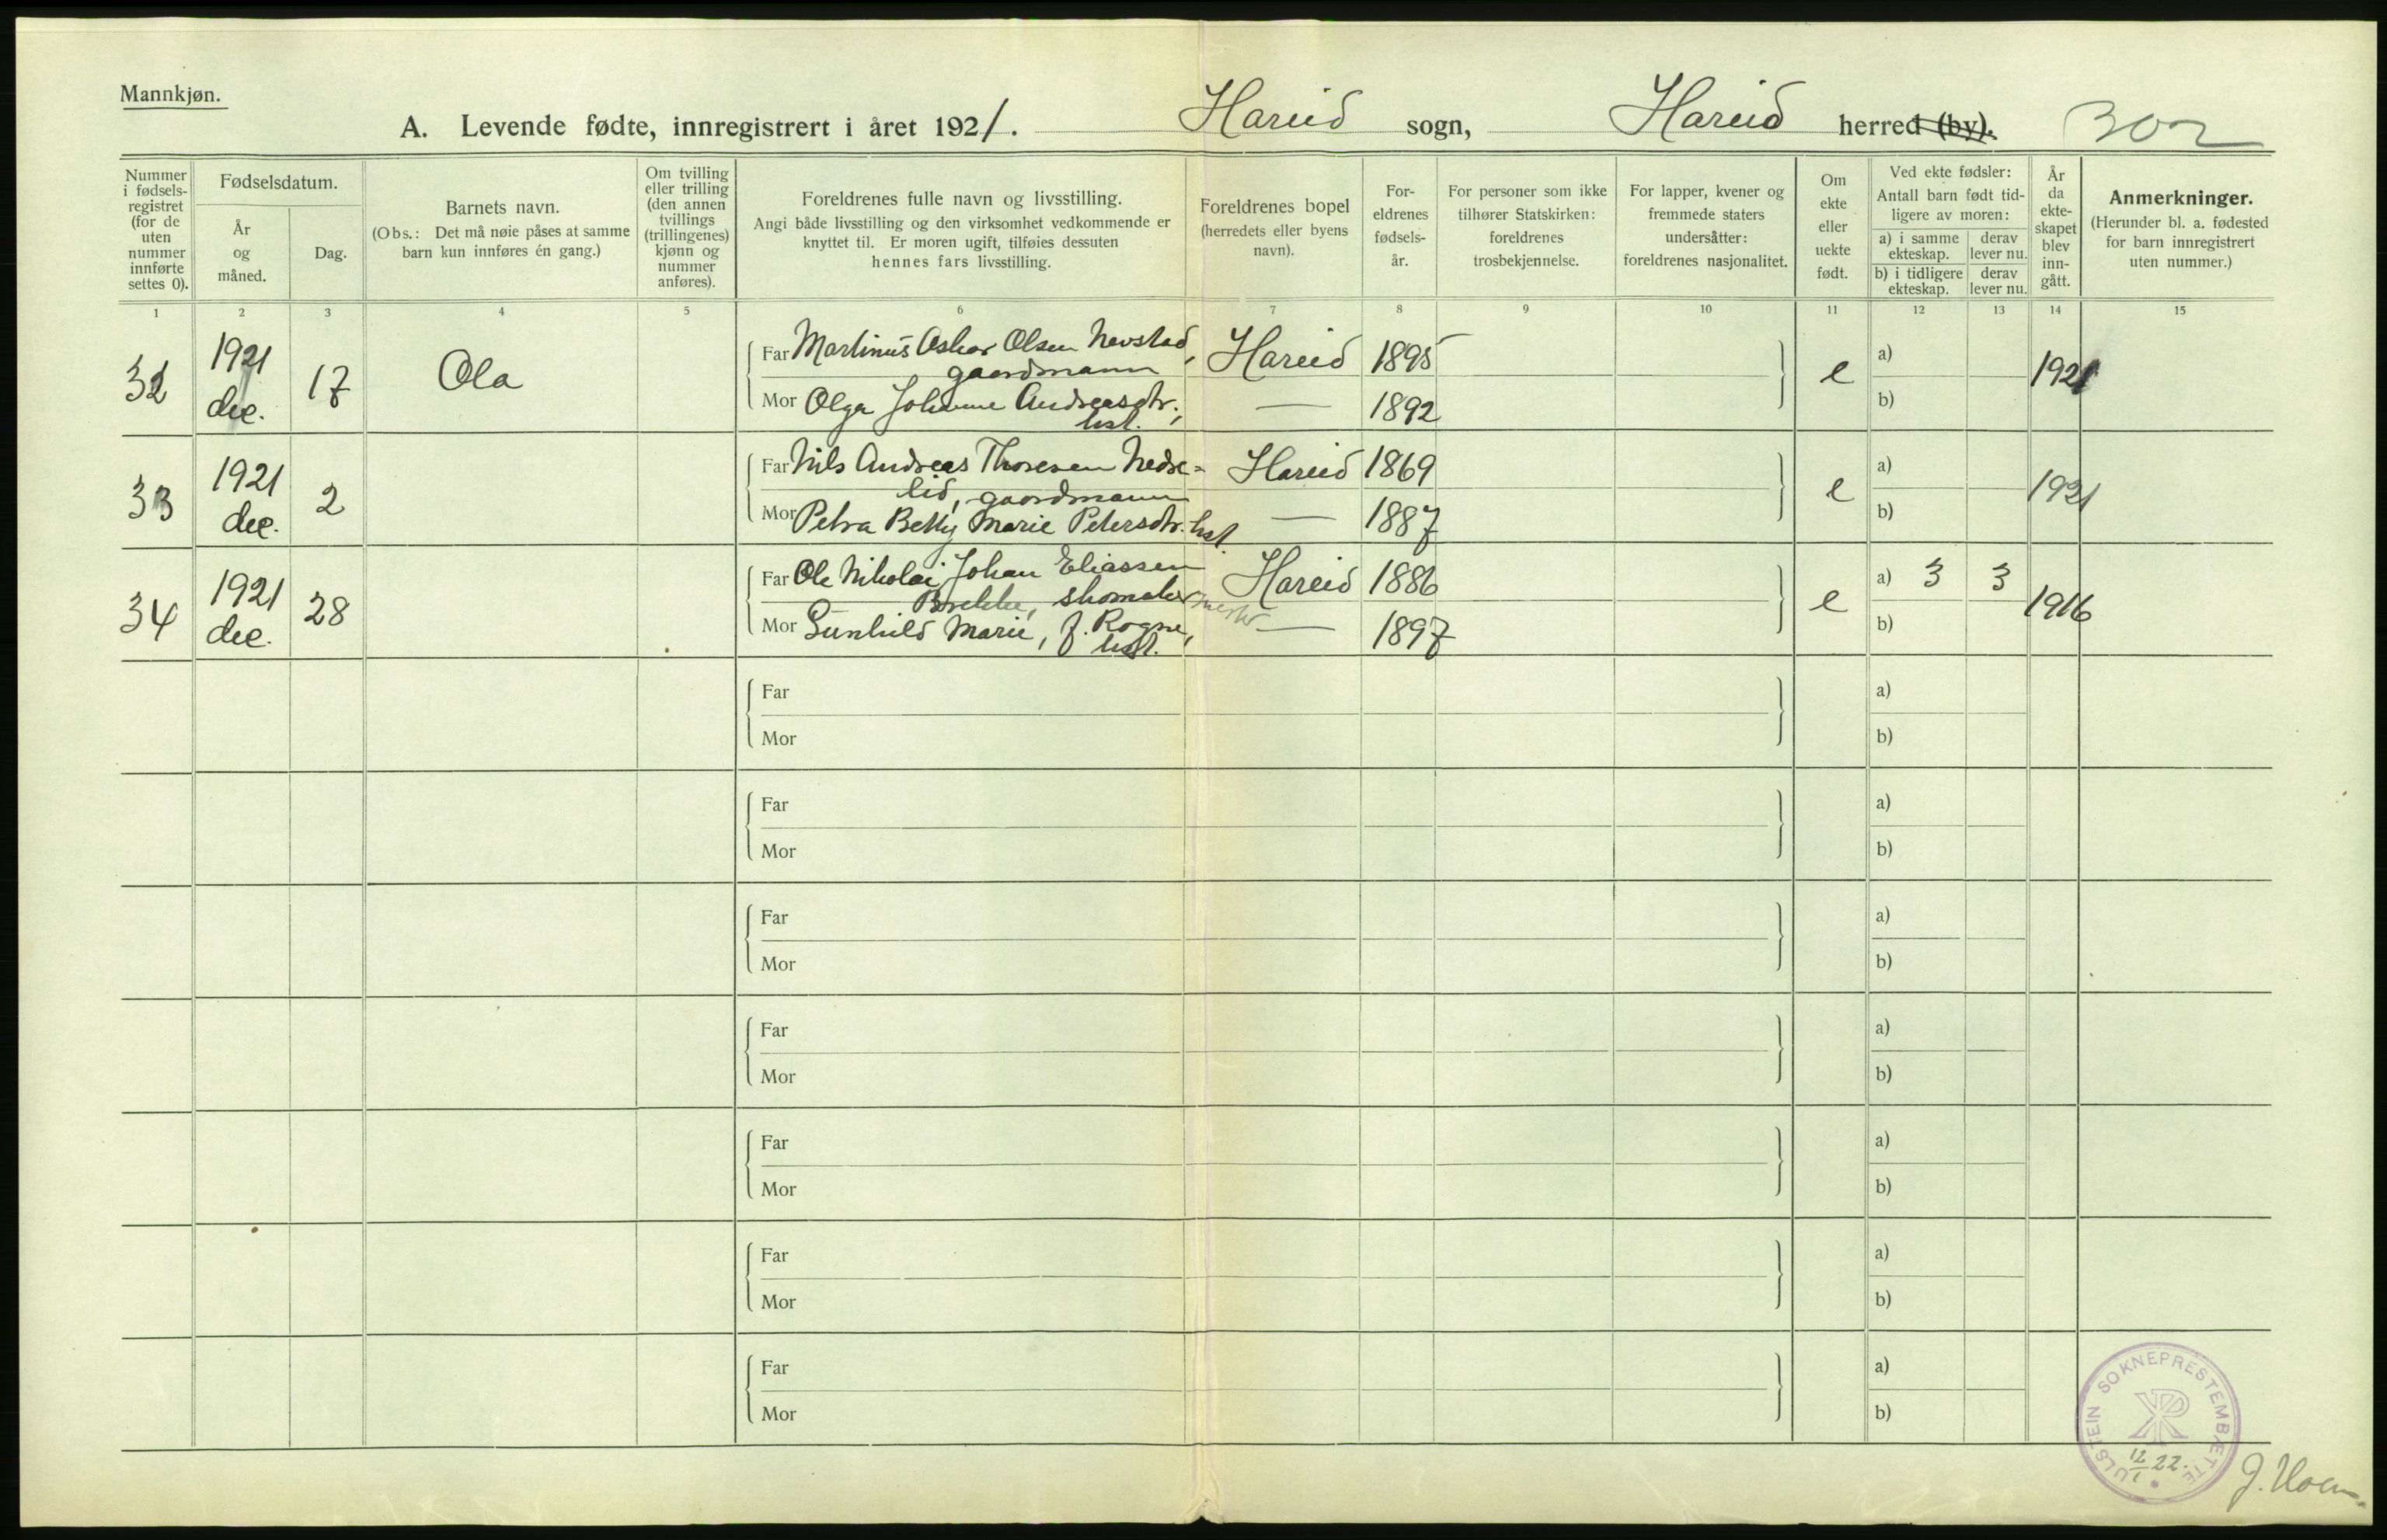 Mannkjøn.
A. Levende fødte, innregistrert i året 1921. Hareid sogn, Hareid herred (by). 302
Nummer i fødsels-registret (for de uten nummer innførte settes 0).
Fødselsdatum.
År og måned.
Dag.
Barnets navn.
(Obs.: Det må nøie påses at samme barn kun innføres én gang.)
Om tvilling eller trilling (den annen tvillings (trillingenes) kjønn og nummer anføres).
Foreldrenes fulle navn og livsstilling.
Angi både livsstilling og den virksomhet vedkommende er knyttet til. Er moren ugift, tilføies dessuten hennes fars livsstilling.
Foreldrenes bopel (herredets eller byens navn).
For-eldrenes fødsels-år.
For personer som ikke tilhører Statskirken: foreldrenes trosbekjennelse.
For lapper, kvener og fremmede staters undersåtter: foreldrenes nasjonalitet.
Om ekte eller uekte født.
Ved ekte fødsler:
Antall barn født tid-ligere av moren:
a) i samme ekteskap. derav lever nu.
b) i tidligere ekteskap. derav lever nu.
År da ekte-skapet blev inn-gått.
Anmerkninger.
(Herunder bl. a. fødested for barn innregistrert uten nummer.)
1 2 3 4 5 6 7 8 9 10 11 12 13 14 15
32 1921 dec. 17 Ola
Far Martinus Oskar Olsen Nevstad, Hareid 1895 e a) 1921
gaardmann
Mor Olga Johanne Andreasdtr., — 1892 b)
hst.
33 1921 dec. 2
Far Nils Andreas Thoresen Nedre= Hareid 1869 e a) 1921
lid, gaardmann
Mor Petra Betty Marie Petersdtr. hst. — 1887 b)
34 1921 dec. 28
Far Ole Nikolai Johan Eliassen Hareid 1886 e a) 3 3 1916
Brekke, skomakermester
Mor Gunhild Marie, f. Rogne, — 1897 b)
hst.
Far a)
Mor b)
Far a)
Mor b)
Far a)
Mor b)
Far a)
Mor b)
Far a)
Mor b)
Far a)
Mor b)
Far a)
Mor b)
ULSTEIN SOKNEPRESTEMBÆTTE
12/1 22.